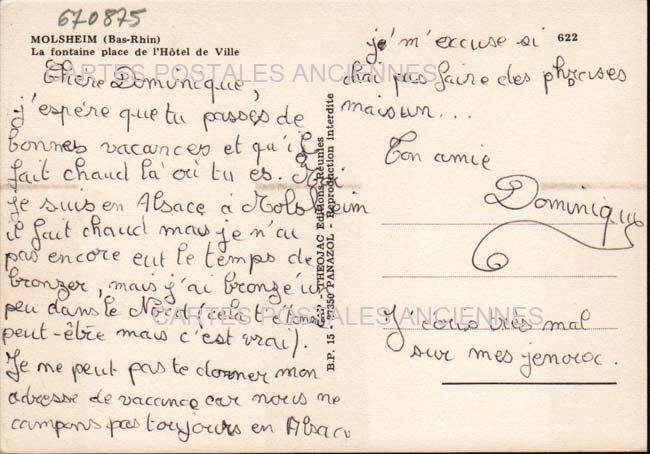 670875
MOLSHEIM (Bas-Rhin)
La fontaine place de l'Hôtel de Ville
622
CARTES POSTALES ANCIENNES
Chère Dominique,
j'espére que tu passes de
bonnes vacances et qu'il
fait chaud là où tu es. Moi
je suis en Alsace à Molsheim
il fait chaud mais je n'ai
pas encore eut le temps de
bronzer, mais j'ai bronzé un
peu dans le Nord (cela t'étonne
peut-être mais c'est vrai).
Je me peut pas te donner mon
adresse de vacance car nous ne
campons pas toujours en Alsace
THEOJAC Editions Réunies
B.P. 15 - 87350 PANAZOL - Reproduction interdite
je m'excuse si
pas faire des phrases
maisun...
Ton amie
Dominique
CARTES POSTALES ANCIENNES
J'écris très mal
sur mes jenoroc.